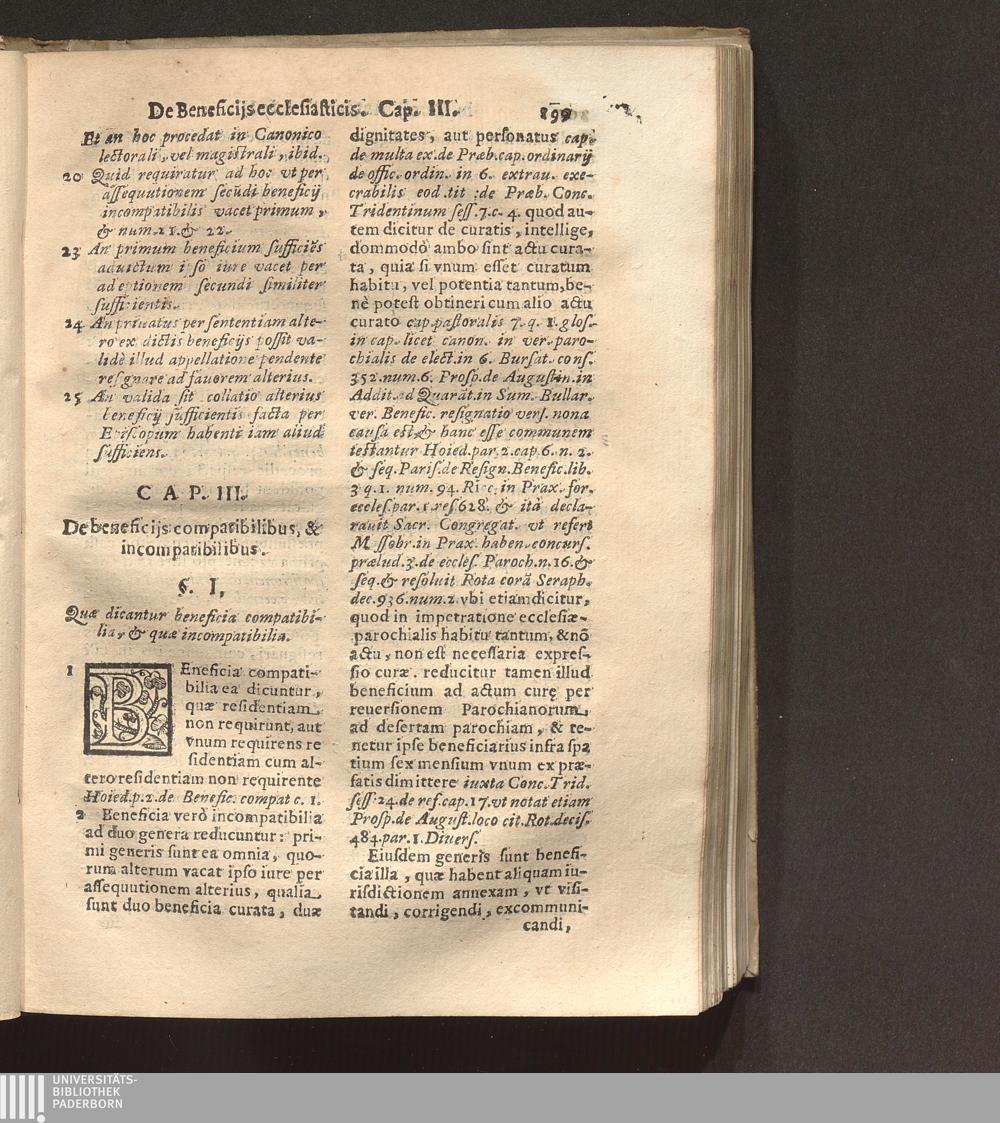 De Beneficijs ecclesiasticis. Cap. III. 899
Et an hoc procedat in Canonico
lectorali, vel magistrali, ibid.
20 Quid requiratur ad hoc vt per
assequutionem secũdi beneficij
incompatibilis vacet primum,
& num. 21. & 22.
23 An primum beneficium sufficiẽs
ad victum ipso iure vacet per
adeptionem secundi similiter
sufficientis.
24 An priuatus per sententiam alte-
ro ex dictis beneficijs possit va-
lidè illud appellatione pendente
resignare ad fauorem alterius.
25 An valida sit collatio alterius
beneficij sufficientis facta per
Episcopum habenti iam aliud
sufficiens.
CAP. III.
De beneficijs compatibilibus, &
incompatibilibus.
§. I,
Quæ dicantur beneficia compatibi-
lia, & quæ incompatibilia.
1 BEneficia compati-
bilia ea dicuntur,
quæ residentiam
non requirunt, aut
vnum requirens re
sidentiam cum al-
tero residentiam non requirente
Hoied. p. 2. de Benefic. compat c. 1.
2 Beneficia verò incompatibilia
ad duo genera reducuntur: pri-
mi generis sunt ea omnia, quo-
rum alterum vacat ipso iure per
assequutionem alterius, qualia
sunt duo beneficia curata, duæ
dignitates, aut personatus cap.
de multa ex. de Præb. cap. ordinarij
de offic. ordin. in 6. extrau. exe-
crabilis eod. tit : de Præb. Conc.
Tridentinum sess. 7. c. 4. quod au-
tem dicitur de curatis, intellige,
dommodò ambo sint actu cura-
ta, quia si vnum esset curatum
habitu, vel potentia tantum, be-
nè potest obtineri cum alio actu
curato cap. pastoralis 7. q. 1. glos.
in cap. licet canon. in ver. paro-
chialis de elect. in 6. Bursat. cons.
352. num. 6. Prosp. de Augustin. in
Addit. ad Quarãt. in Sum. Bullar.
ver. Benefic. resignatio vers. nona
causa est, & hanc esse communem
testantur Hoied. par. 2. cap. 6. n. 2.
& seq. Paris. de Resign. Benefic. lib.
3 q. 1. num. 94. Ricc. in Prax. for.
eccles. par. 1. res. 628. & ità decla-
rauit Sacr. Congregat. vt refert
Massobr. in Prax. haben. concurs.
prælud. 3. de eccles. Paroch. n. 16. &
seq. & resoluit Rota corã Seraph.
dec. 936. num. 2 vbi etiam dicitur,
quod in impetratione ecclesiæ
parochialis habitu tantum, & nõ
actu, non est necessaria expres-
sio curæ. reducitur tamen illud
beneficium ad actum curę per
reuersionem Parochianorum,
ad desertam parochiam, & te-
netur ipse beneficiarius infra spa
tium sex mensium vnum ex præ-
fatis dimittere iuxta Conc. Trid.
sess. 24. de ref. cap. 17. vt notat etiam
Prosp. de August. loco cit. Rot. decis.
484. par. 1. Diuers.
Eiusdem generis sunt benefi-
cia illa, quæ habent aliquam iu-
risdictionem annexam, vt visi-
tandi, corrigendi, excommuni-
candi,
UNIVERSITÄTS-
BIBLIOTHEK
PADERBORN